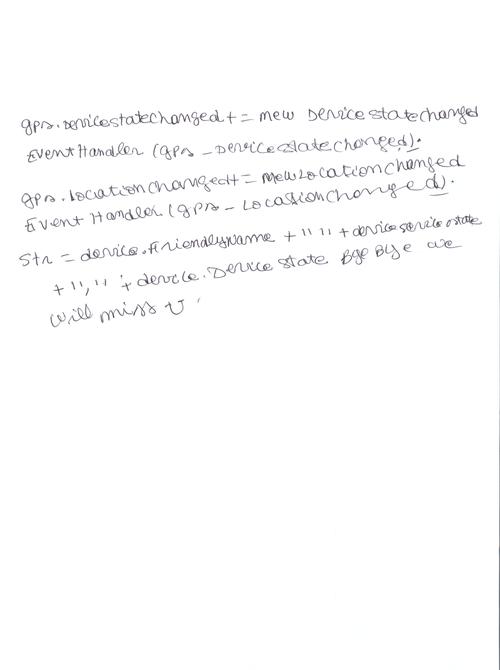 gps.DeviceStateChanged += new DeviceStateChanged
EventHandler (gps_DeviceStateChanged).
gps.LocationChanged += new LocationChanged
EventHandler (gps_LocationChanged).
Str = device.FriendlyName + " " + device.serviceState
+ "," + device.DeviceState Bye Bye we
will miss U .